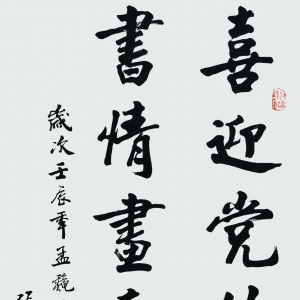 喜迎党
書情畫
歲次壬辰年孟